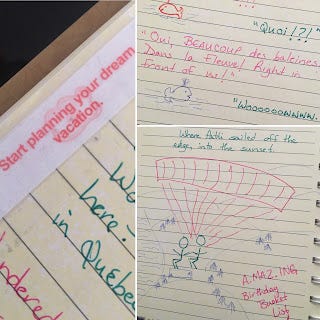 Start planning your dream
vacation.
here-
in Quebec
"Quoi!?!"
"Oui, BEAUCOUP des baleines.
Dans la fleuve! Right in
front of me!"
"Wooooooowwww.
Where Aathi sailed off the
edge, into the sunset.
A.MAZ.ING
Birthday
Bucket
List